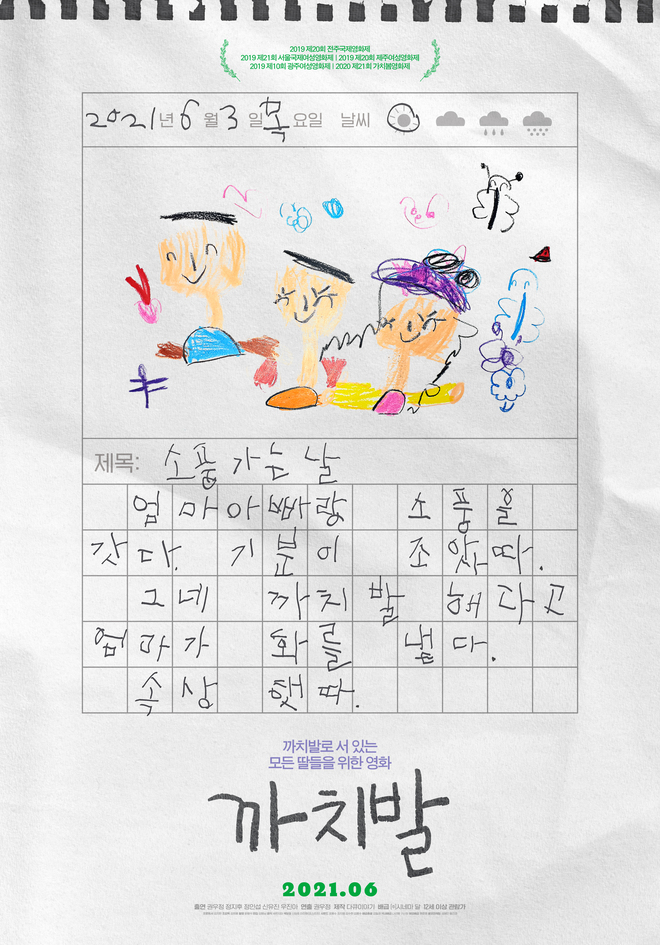 2019 제20회 전주국제영화제
2019 제21회 서울국제여성영화제 | 2019 제20회 제주여성영화제
2019 제10회 광주여성영화제 | 2020 제21회 가치봄영화제
2021년 6월 3일 목요일 날씨
제목: 소풍 가는 날
엄마아빠랑 소풍을
갔다. 기분이 조았따.
그네 까치발 해라고
엄마가 화를 냈다.
속상했따.
까치발로 서 있는
모든 딸들을 위한 영화
까치발
2021.06
출연 권우정 정지후 정민섭 신유진 우진아 연출 권우정 제작 다큐이야기 배급 ㈜시네마 달 12세 이상 관람가